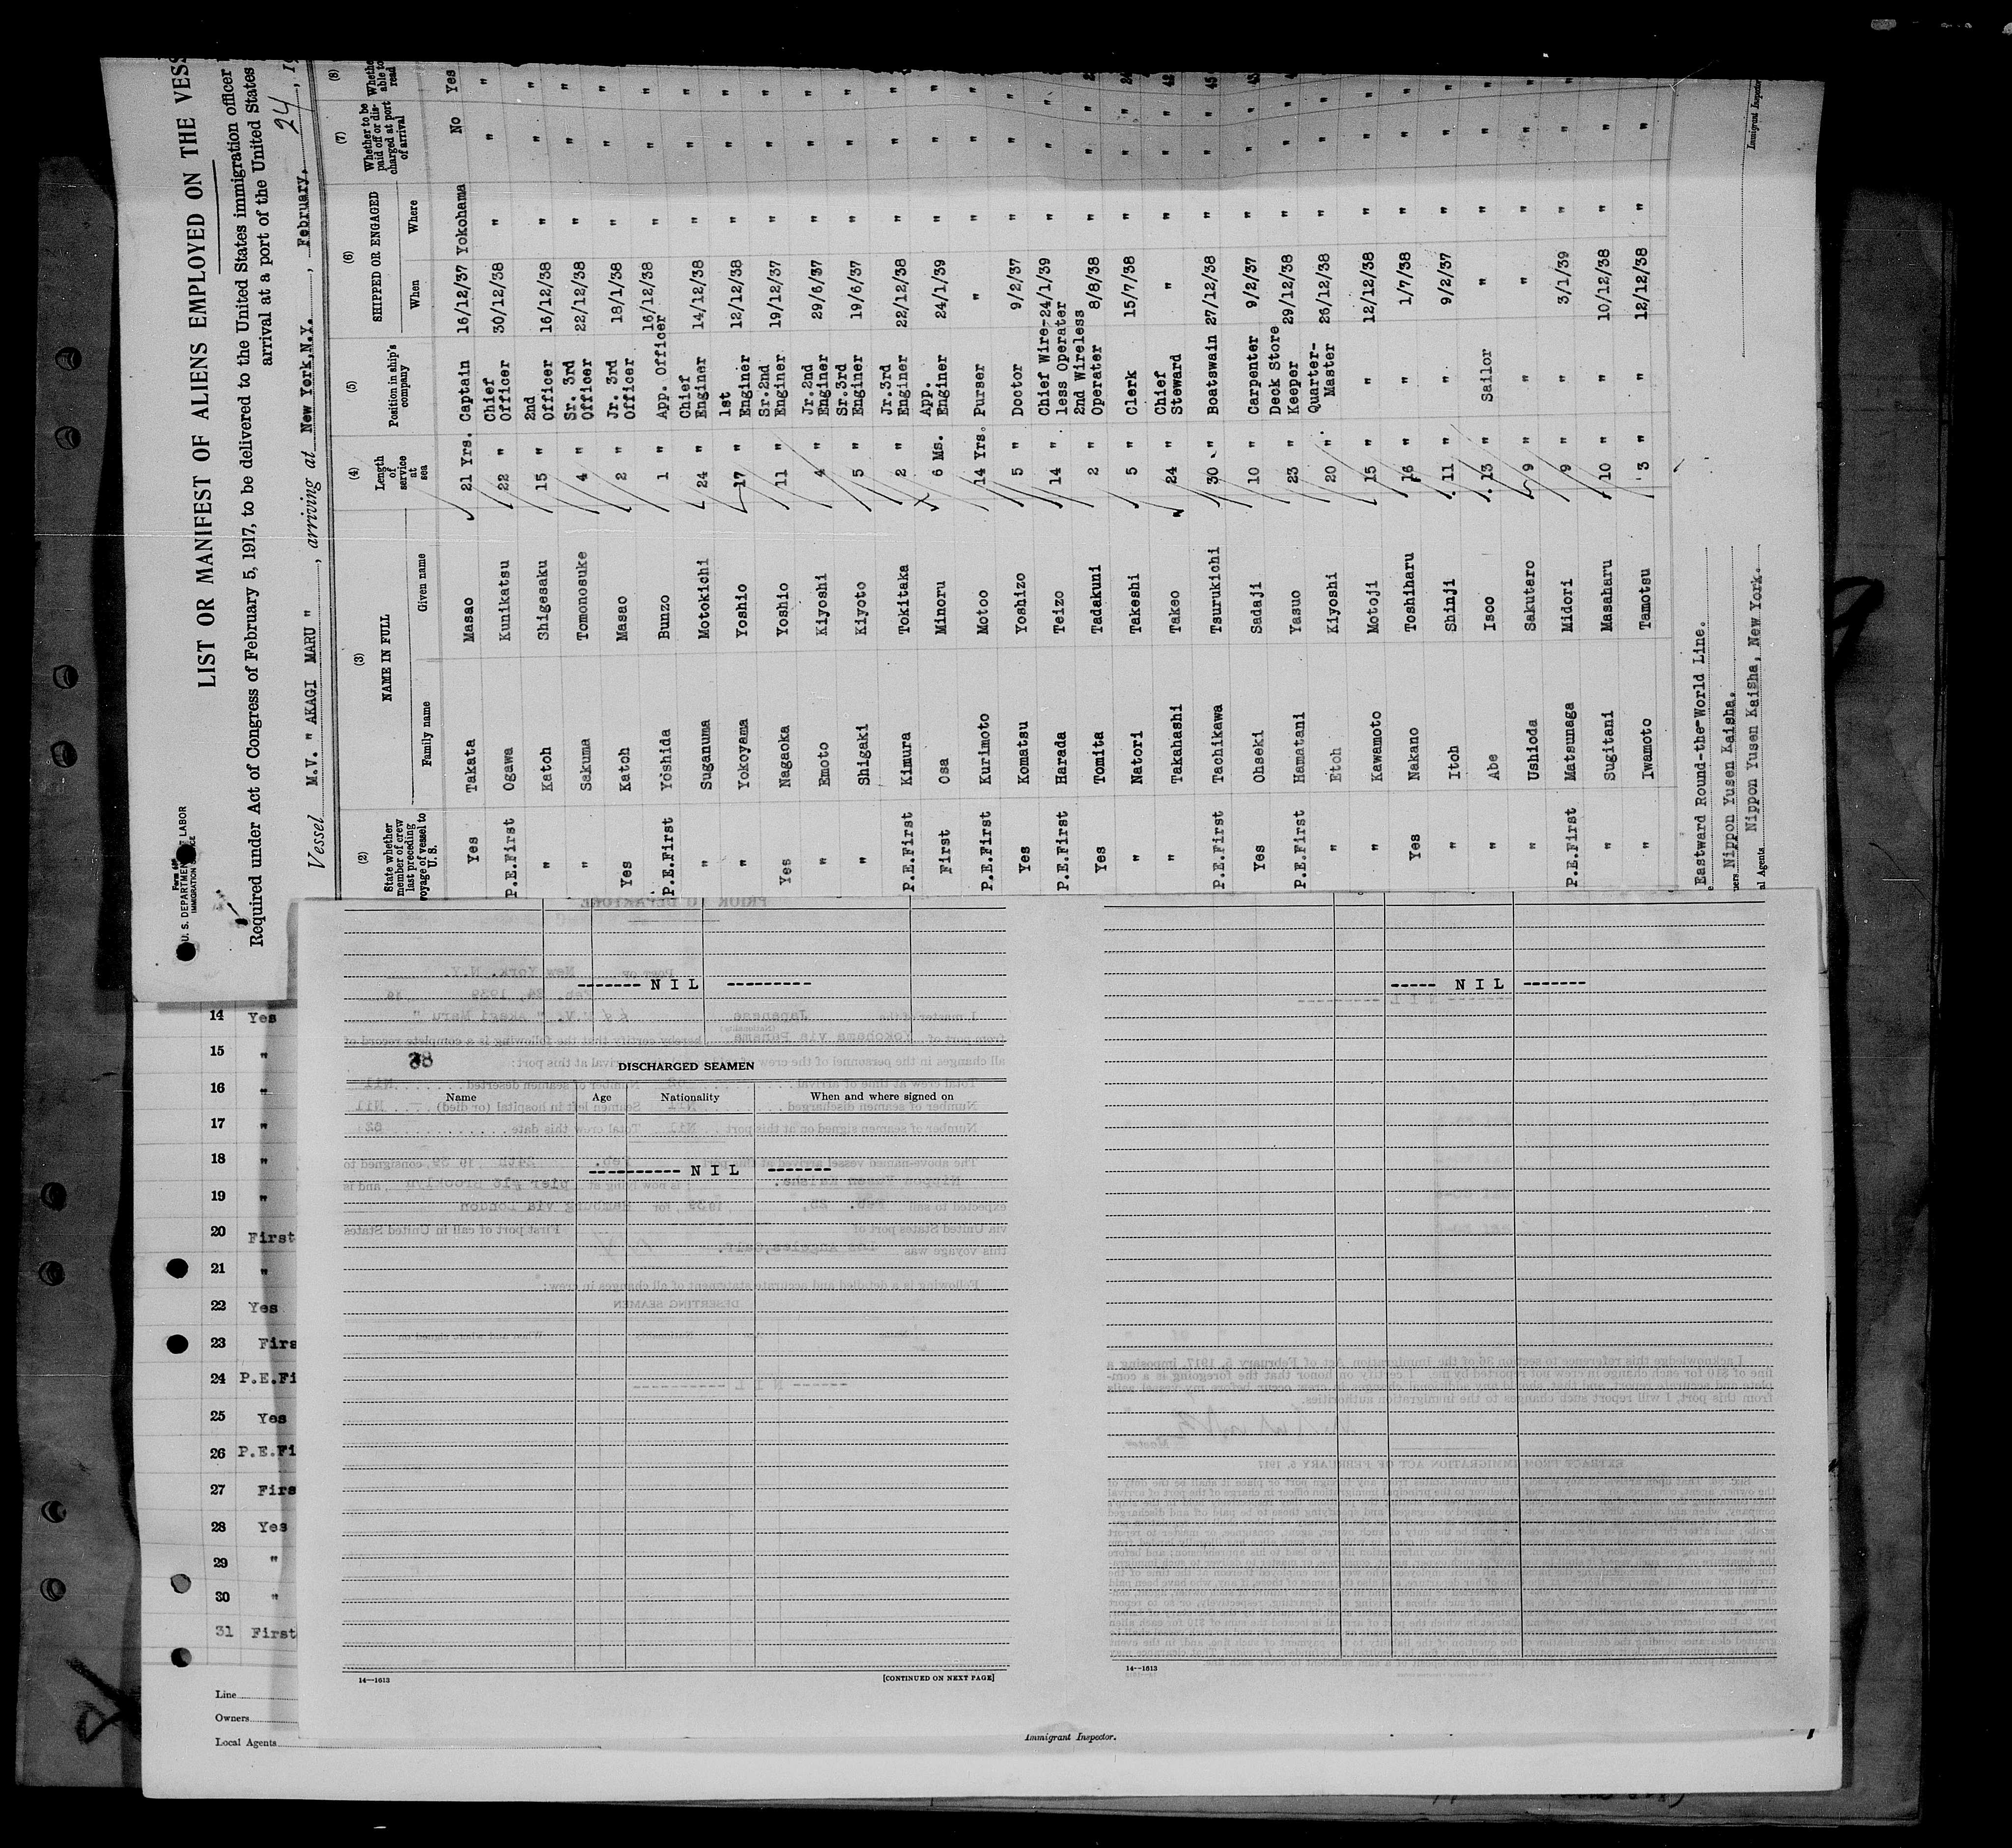 Form 680
U. S. DEPARTMENT OF LABOR
IMMIGRATION SERVICE
LIST OR MANIFEST OF ALIENS EMPLOYED ON THE VESS
Required under Act of Congress of February 5, 1917, to be delivered to the United States immigration officer
arrival at a port of the United States
Vessel M.V. " AKAGI MARU ", arriving at New York,N.Y., February, 24, 19
(2) (3) (4) (5) (6) (7) (8)
State whether member of crew last preceding voyage of vessel to U. S. NAME IN FULL Length of service at sea Position in ship's company SHIPPED OR ENGAGED Whether to be paid off or discharged at port of arrival Whether able to read
Family name Given name When Where
Yes Takata Masao 21 Yrs. Captain 16/12/37 Yokohama No Yes
P.E.First Ogawa Kunikatsu 22 " Chief Officer 30/12/38 " " "
" Katoh Shigesaku 15 " 2nd Officer 16/12/38 " " "
" Sakuma Tomonosuke 4 " Sr. 3rd Officer 22/12/38 " " "
Yes Katoh Masao 2 " Jr. 3rd Officer 18/1/38 " " "
P.E.First Yoshida Bunzo 1 " App. Officer 16/12/38 " " "
" Suganuma Motokichi 24 " Chief Enginer 14/12/38 " " "
" Yokoyama Yoshio 17 " 1st Enginer 12/12/38 " " "
Yes Nagaoka Yoshio 11 " Sr.2nd Enginer 19/12/37 " " "
" Emoto Kiyoshi 4 " Jr.2nd Enginer 29/6/37 " " "
" Shigaki Kiyoto 5 " Sr.3rd Enginer 19/6/37 " " "
P.E.First Kimura Tokitaka 2 " Jr.3rd Enginer 22/12/38 " " "
First Osa Minoru 6 Ms. App. Enginer 24/1/39 " " "
P.E.First Kurimoto Motoo 14 Yrs. Purser " " " "
Yes Komatsu Yoshizo 5 " Doctor 9/2/37 " " "
P.E.First Harada Teizo 14 " Chief Wire-less Operater 24/1/39 " " "
Yes Tomita Tadakuni 2 " 2nd Wireless Operater 8/8/38 " " "
" Natori Takeshi 5 " Clerk 15/7/38 " " "
" Takahashi Takeo 24 " Chief Steward " " " "
P.E.First Tachikawa Tsurukichi 30 " Boatswain 27/12/38 " " "
Yes Ohseki Sadaji 10 " Carpenter 9/2/37 " " "
P.E.First Hamatani Yasuo 23 " Deck Store Keeper 29/12/38 " " "
" Etoh Kiyoshi 20 " Quarter-Master 26/12/38 " " "
" Kawamoto Motoji 15 " " 12/12/38 " " "
Yes Nakano Toshiharu 16 " " 1/7/38 " " "
" Itoh Shinji 11 " " 9/2/37 " " "
" Abe Isoo 13 " Sailor " " " "
" Ushioda Sakutaro 9 " " " " " "
P.E.First Matsunaga Midori 9 " " 3/1/39 " " "
" Sugitani Masaharu 10 " " 10/12/38 " " "
" Iwamoto Tamotsu 3 " " 12/12/38 " " "
Eastward Round-the-World Line.
Nippon Yusen Kaisha.
al Agents Nippon Yusen Kaisha, New York.
Immigrant Inspector
14 Yes
15 "
16 "
17 "
18 "
19 "
20 First
21 "
22 Yes
23 Firs
24 P.E.Fi
25 Yes
26 P.E.Fi
27 Firs
28 Yes
29 "
30 "
31 First
Line
Owners
Local Agents
------- N I L ---------
38
DISCHARGED SEAMEN
Name Age Nationality When and where signed on
----------- N I L -------
14—1613 [CONTINUED ON NEXT PAGE]
----- N I L -------
14—1613
Immigrant Inspector.